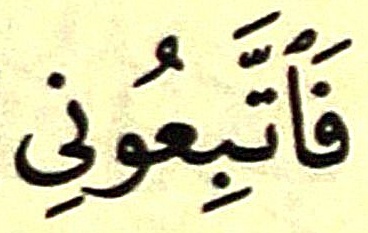 فَٱتَّبِعُونِي